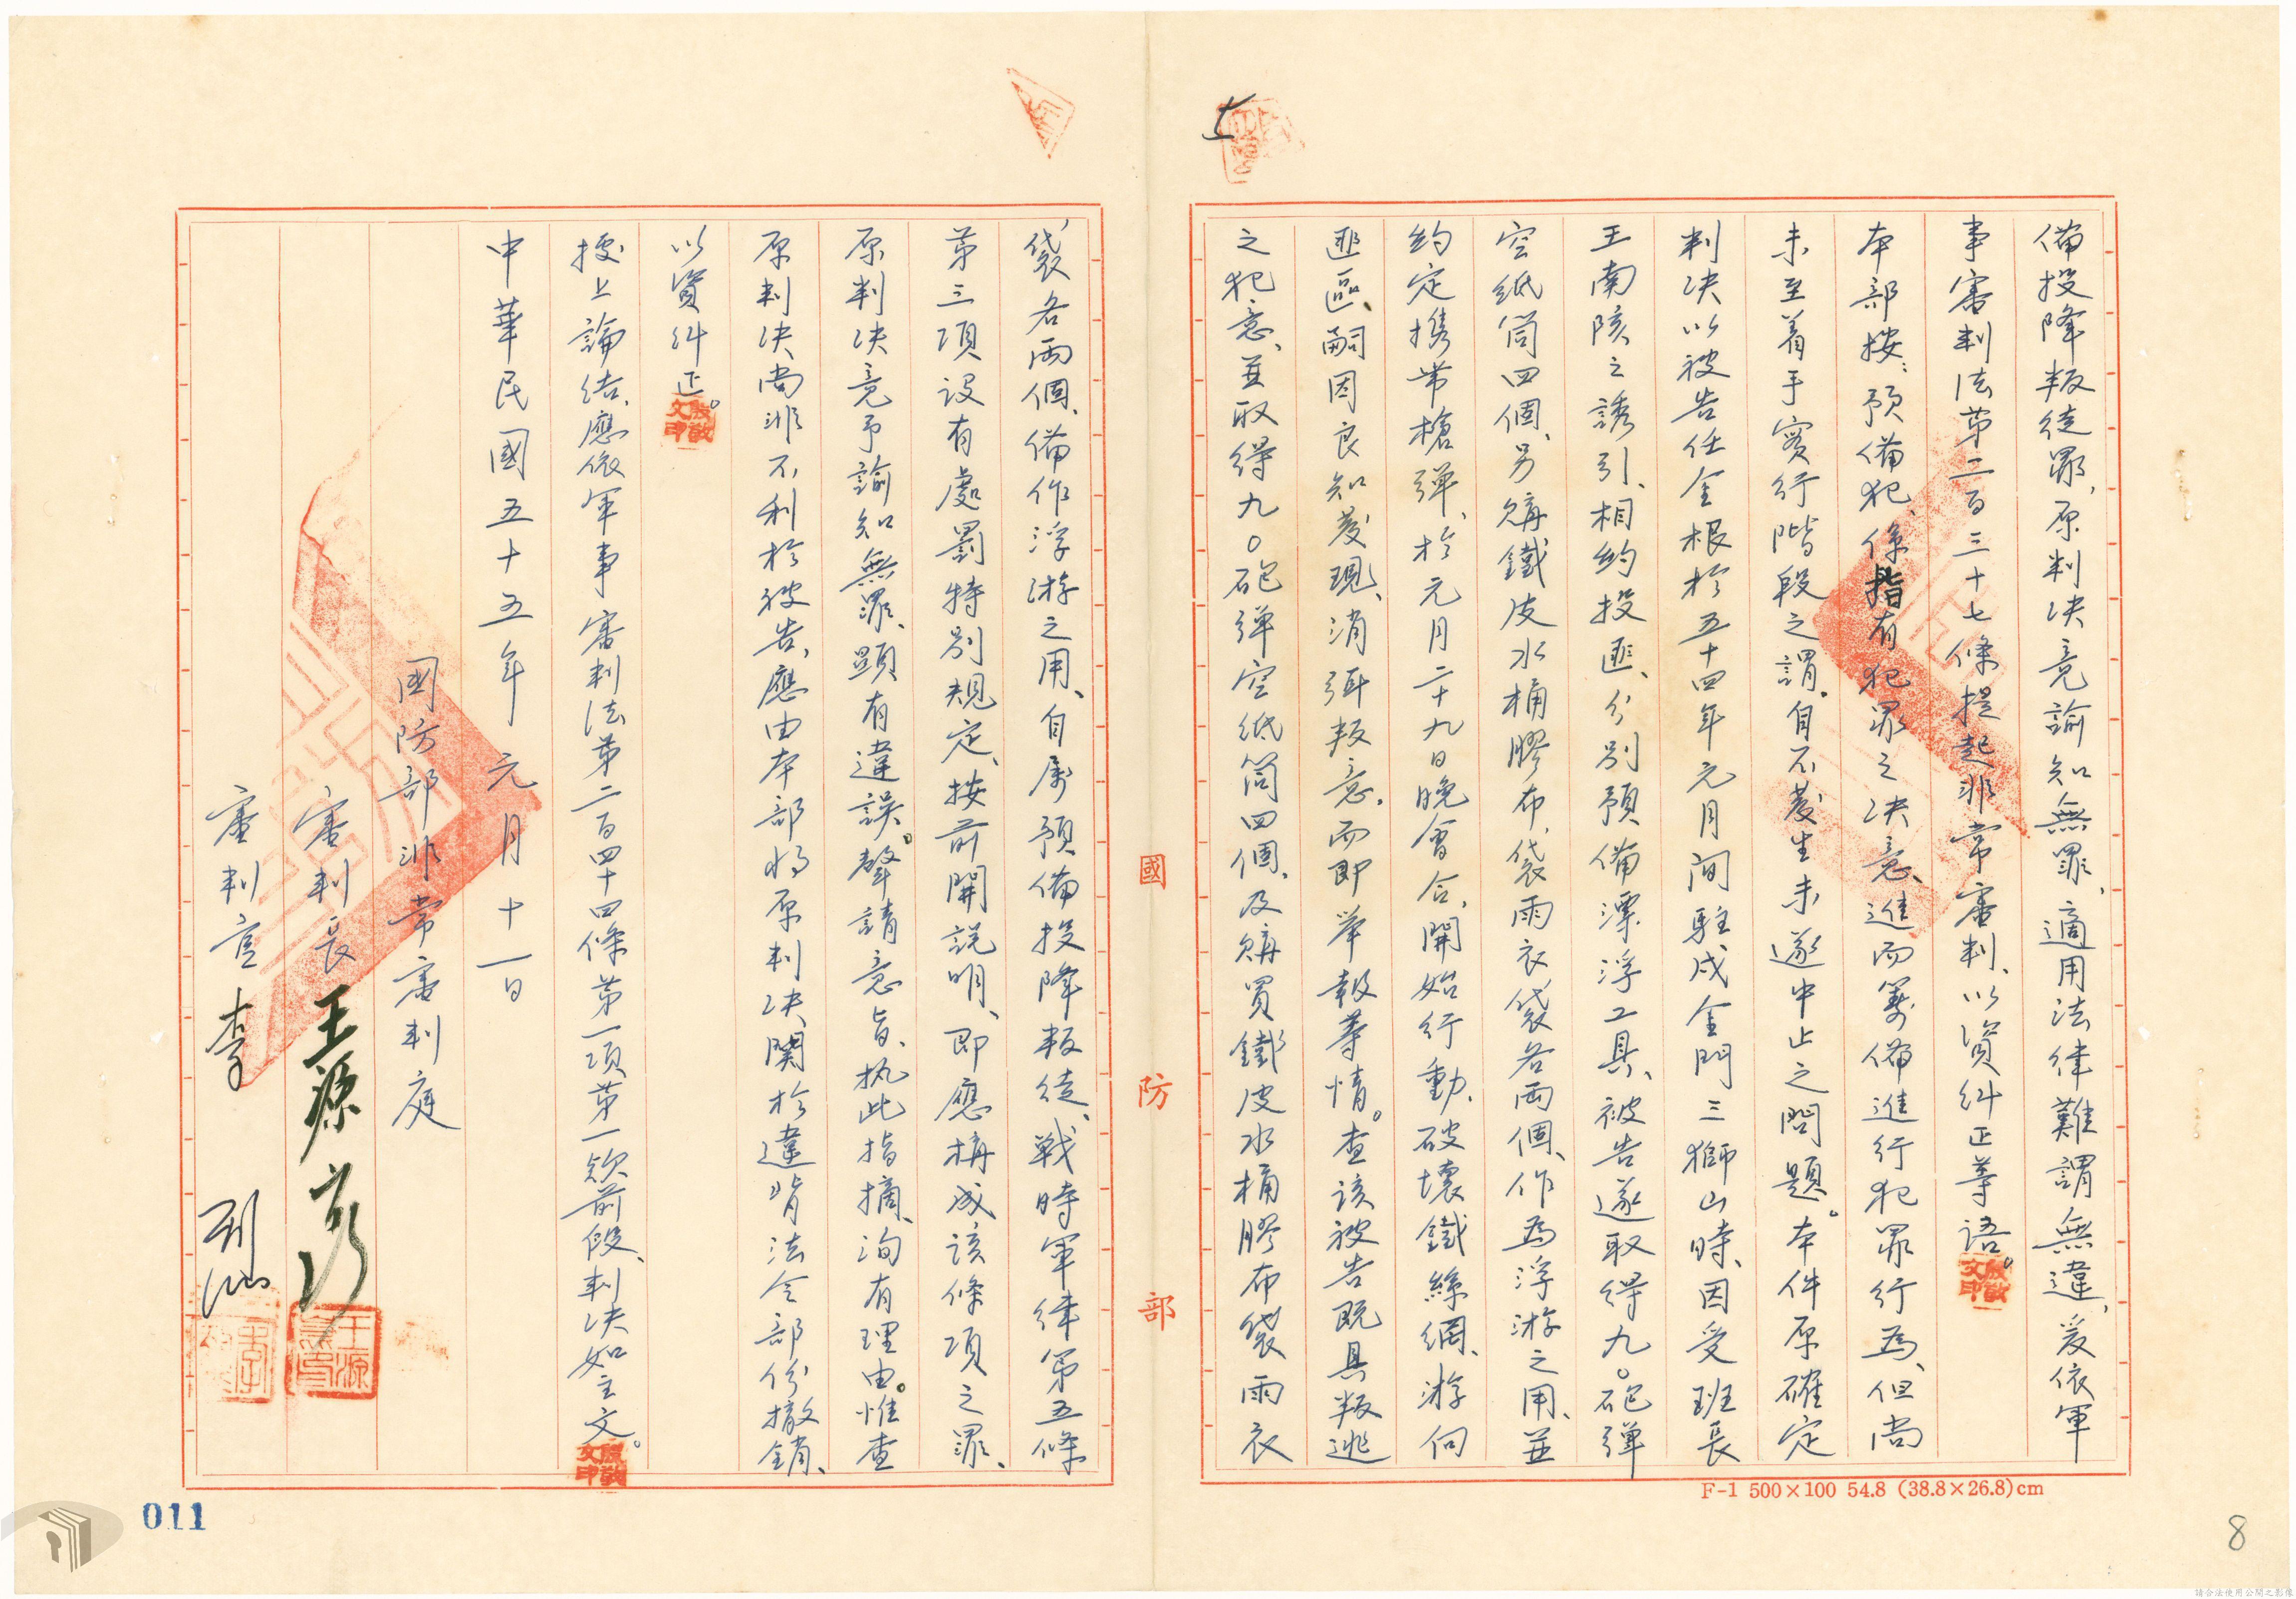 備投降叛徒罪，原判決竟諭知無罪、適用法律難謂無違、爰依軍
事審判法第二百三十七條提起非常審判、以資糾正等語。
本部按：預備犯、係指有犯罪之決意、進而籌備進行犯罪行為、但尚
未至着手實行階段之謂。自不發生未遂中止之問題。本件原確定
判決以被告任金根於五十四年元月間駐戍金門三獅山時、因受班長
王南陔之誘引、相約投匪、分別預備漂浮工具、被告遂取得九〇砲彈
空紙筒四個、另購鐵皮水桶膠布袋雨衣袋各兩個、作為浮游之用、並
約定携帶槍彈、於元月二十九日晚會合、開始行動、破壞鐵絲網、游向
匪區、嗣因良知發現、消弭叛意、而即舉報等情。查該被告既具叛逃
之犯意、並取得九〇砲彈空紙筒四個、及購買鐵皮水桶膠布袋雨衣
袋各兩個、備作浮游之用、自屬預備投降叛徒、戰時軍律第五條
第三項設有處罰特別規定、按前開說明、即應構成該條項之罪、
原判決竟予諭知無罪、顯有違誤。聲請意旨、執此指摘、洵有理由。惟查
原判決尚非不利於被告、應由本部將原判決關於違背法令部份撤銷、
以資糾正。
據上論結、應依軍事審判法第二百四十四條第一項第一款前段、判決如主文。
中華民國五十五年元月十一日
國防部非常審判庭
審判長 王源
審判官 李
國防部
F-1 500×100 54.8 (38.8×26.8)cm
011
8
請合法使用公開之影像